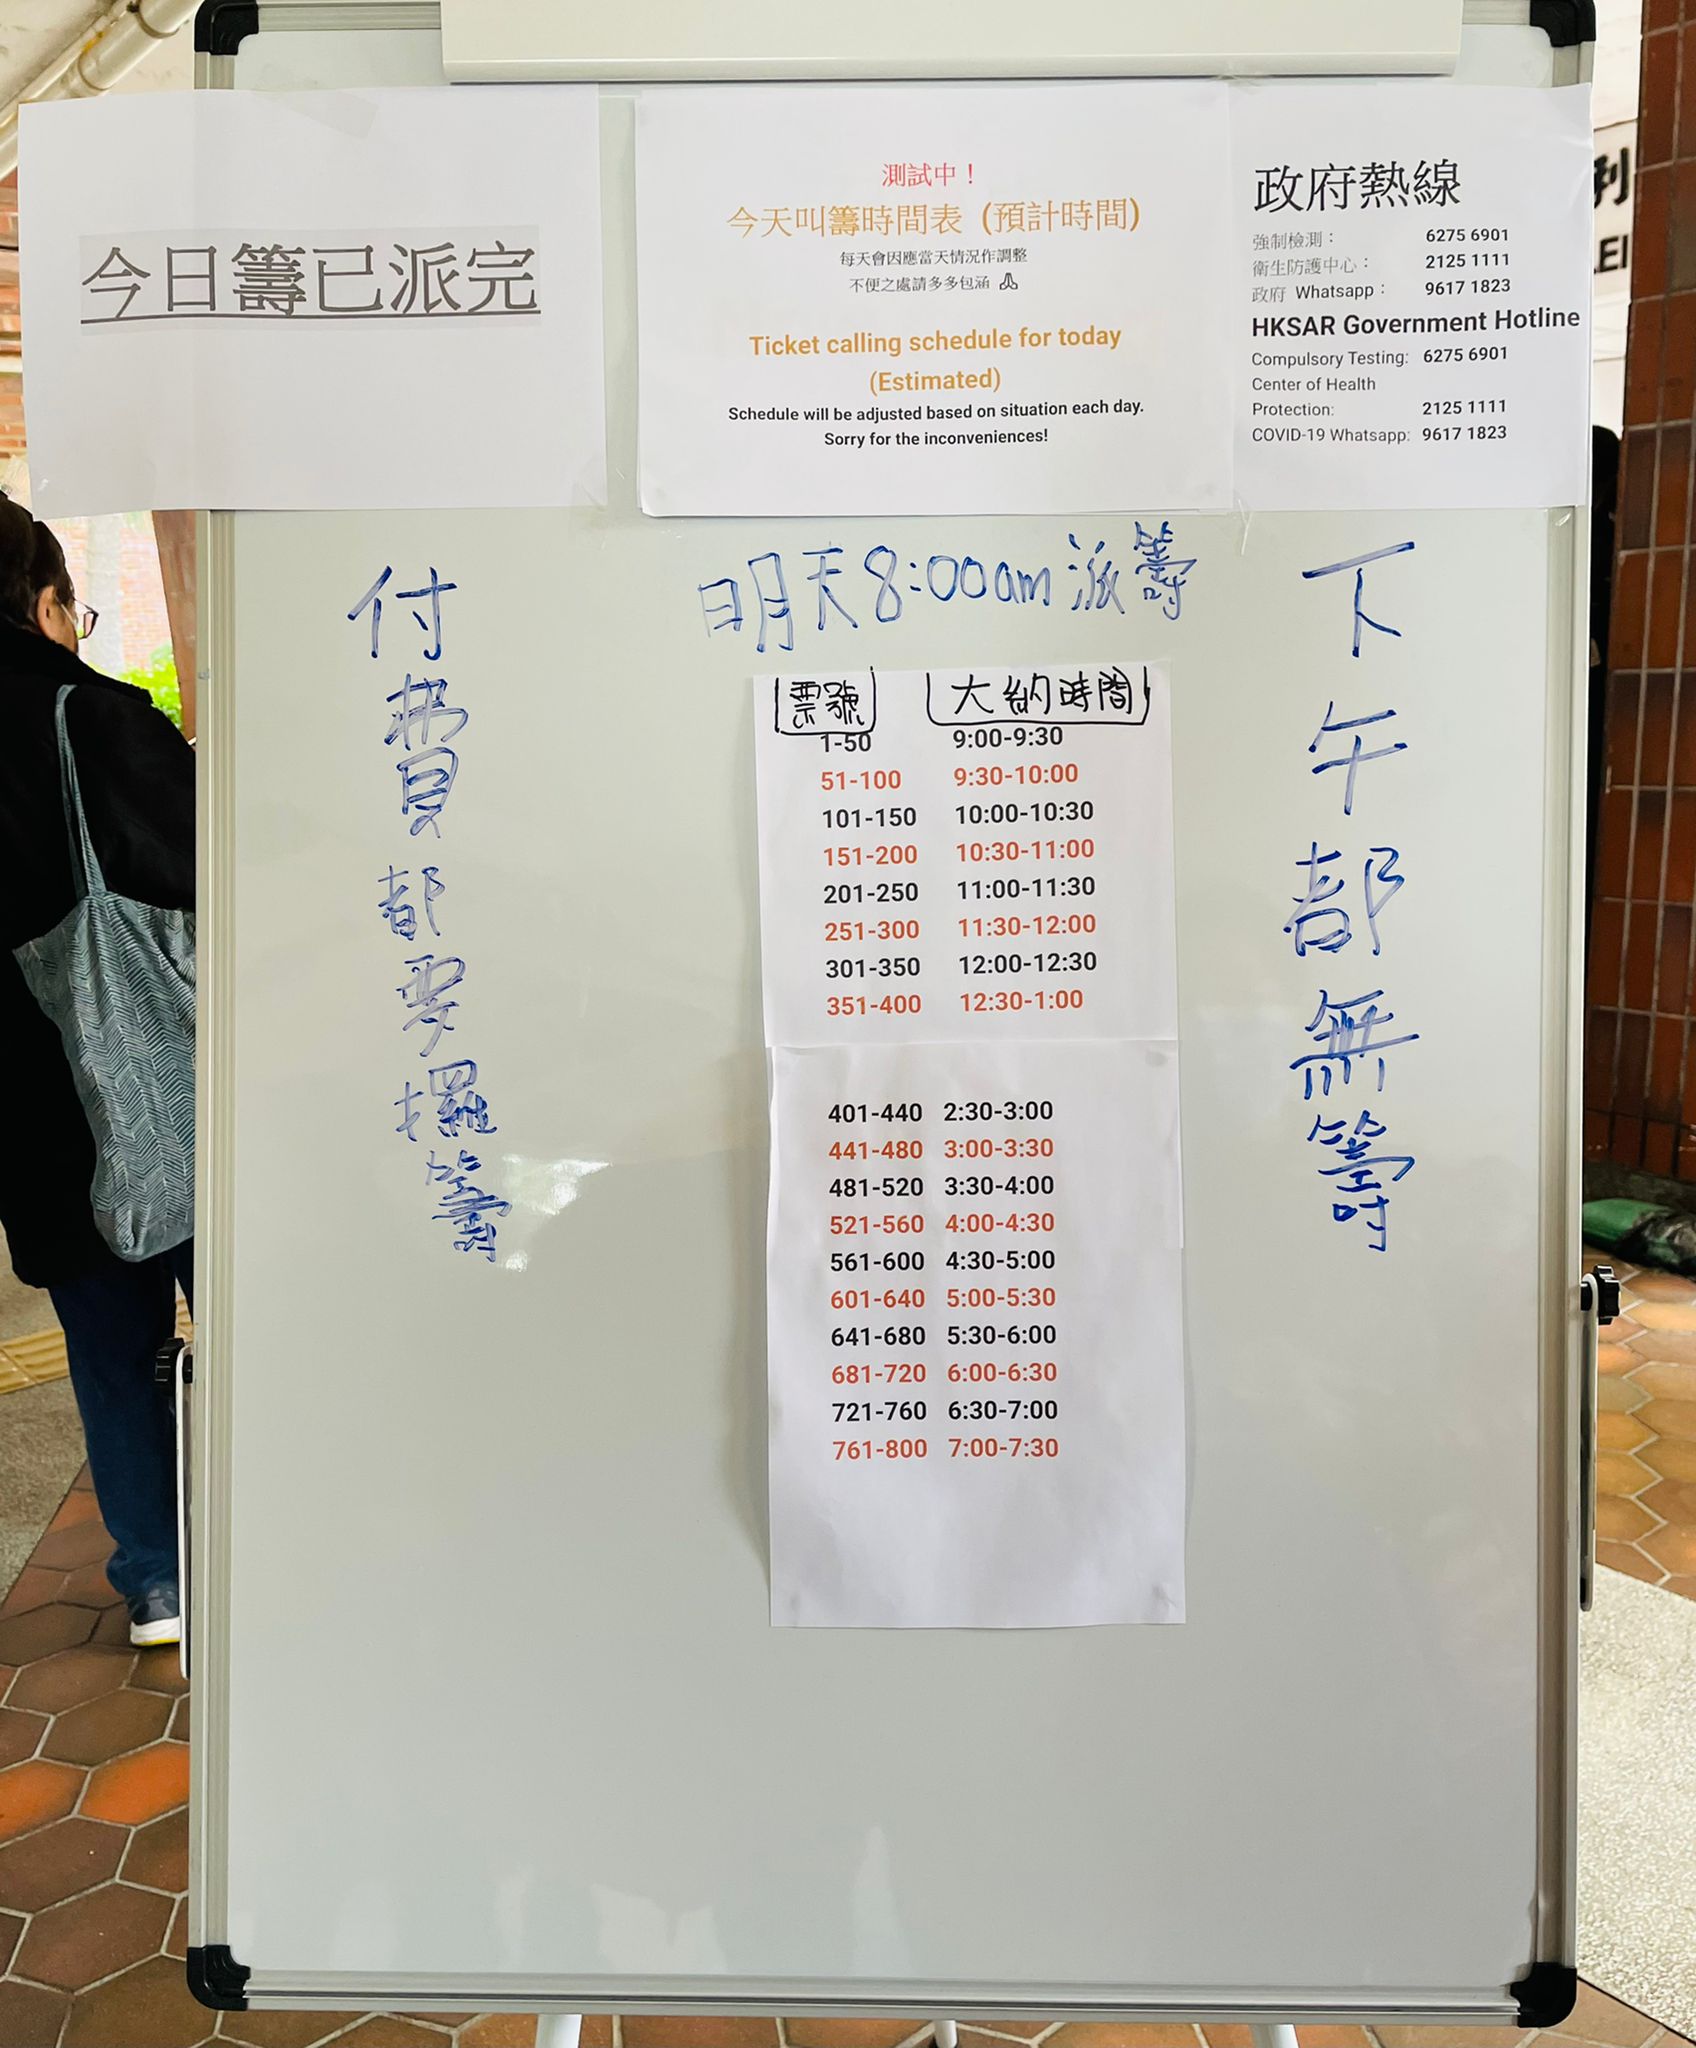 今日籌已派完
測試中！
今天叫籌時間表 (預計時間)
每天會因應當天情況作調整
不便之處請多多包涵 🙏
Ticket calling schedule for today
(Estimated)
Schedule will be adjusted based on situation each day.
Sorry for the inconveniences!
政府熱線
強制檢測： 6275 6901
衛生防護中心： 2125 1111
政府 Whatsapp： 9617 1823
HKSAR Government Hotline
Compulsory Testing: 6275 6901
Center of Health
Protection: 2125 1111
COVID-19 Whatsapp: 9617 1823
付費都要攞籌
明天8:00am派籌
票號 大納時間
1-50 9:00-9:30
51-100 9:30-10:00
101-150 10:00-10:30
151-200 10:30-11:00
201-250 11:00-11:30
251-300 11:30-12:00
301-350 12:00-12:30
351-400 12:30-1:00
401-440 2:30-3:00
441-480 3:00-3:30
481-520 3:30-4:00
521-560 4:00-4:30
561-600 4:30-5:00
601-640 5:00-5:30
641-680 5:30-6:00
681-720 6:00-6:30
721-760 6:30-7:00
761-800 7:00-7:30
下午都無籌